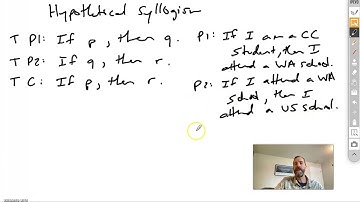 Hypothetical Syllogism
T P1: If p, then q.
T P2: If q, then r.
T C: If p, then r.
P1: If I am a CC
student, then I
attend a WA school.
P2: If I attend a WA
school, then I
attend a US school.